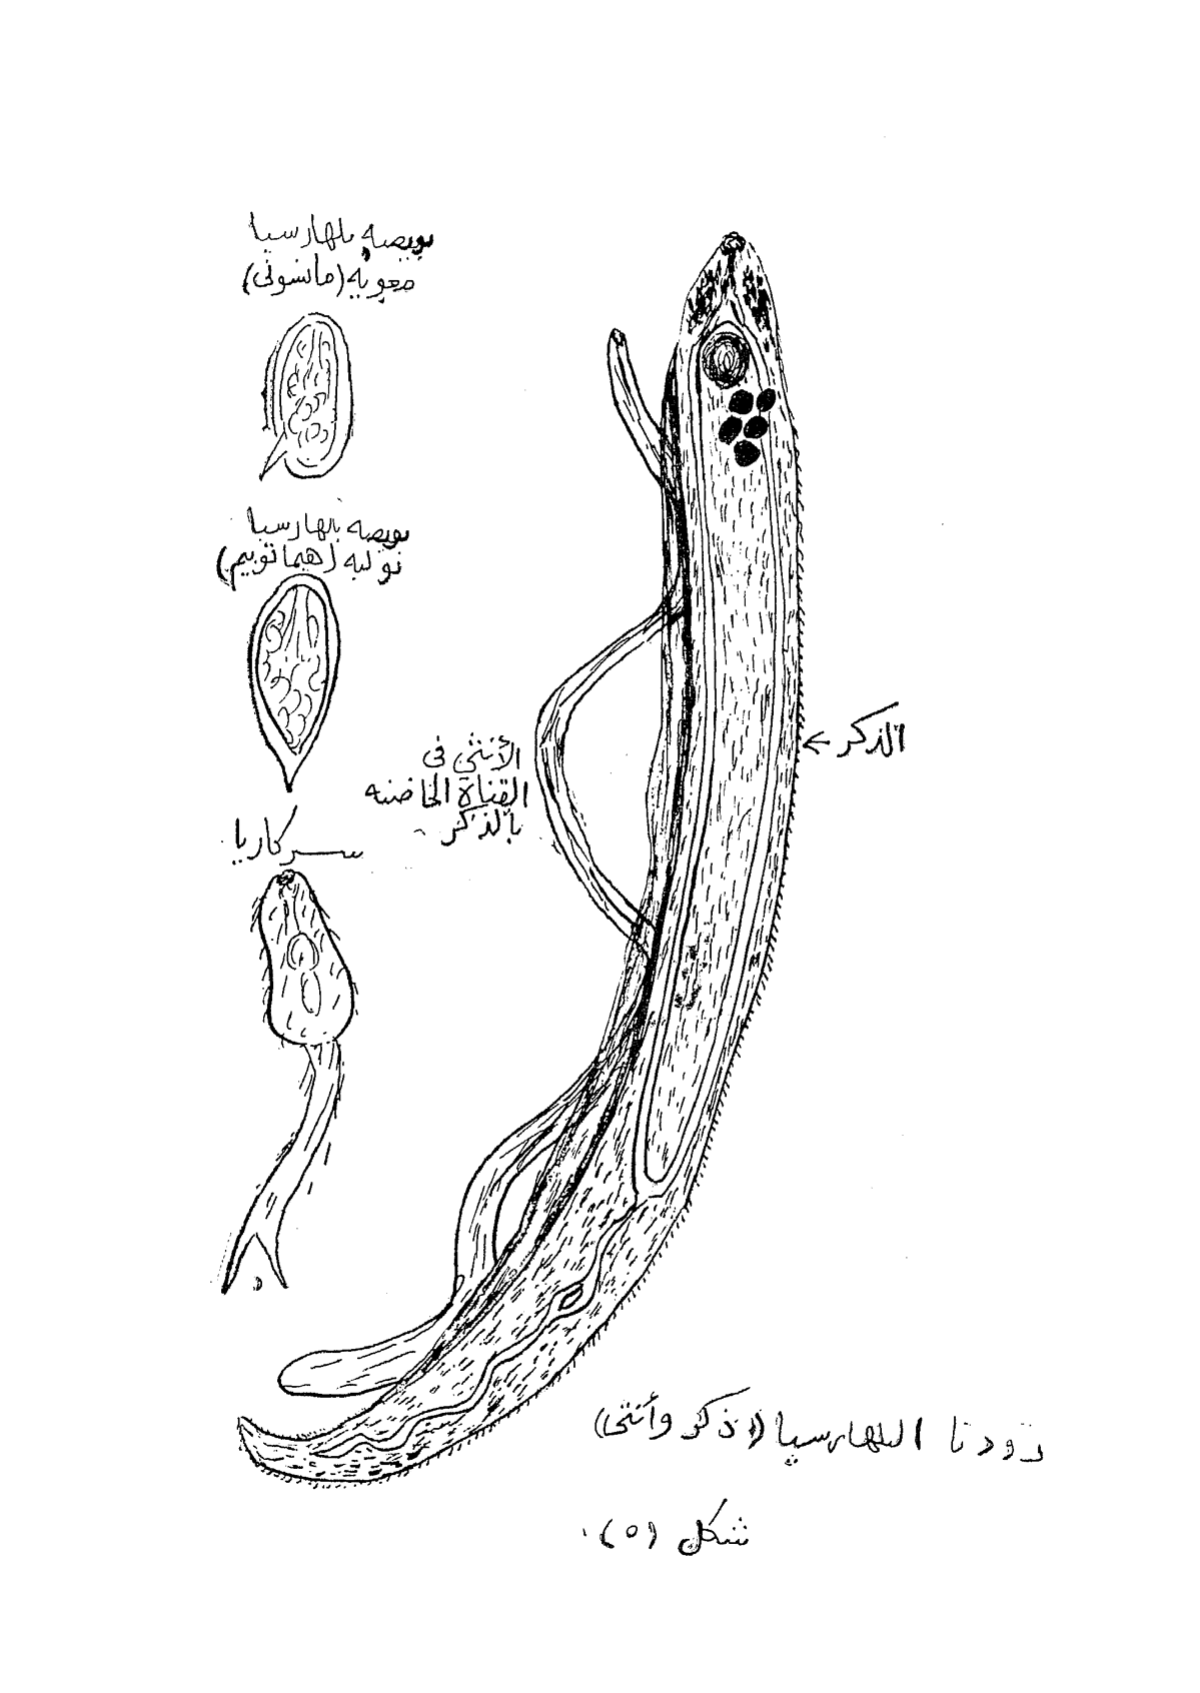 بويضه بلهارسيا
معويه (مانسونى)
بويضه بلهارسيا
بوليه (هيماتوبيم)
الذكر
الأنثى فى
القناة الحاضنه
بالذكر
سركاريا
دودتا البلهارسيا (ذكر وأنثى)
شكل (٥)